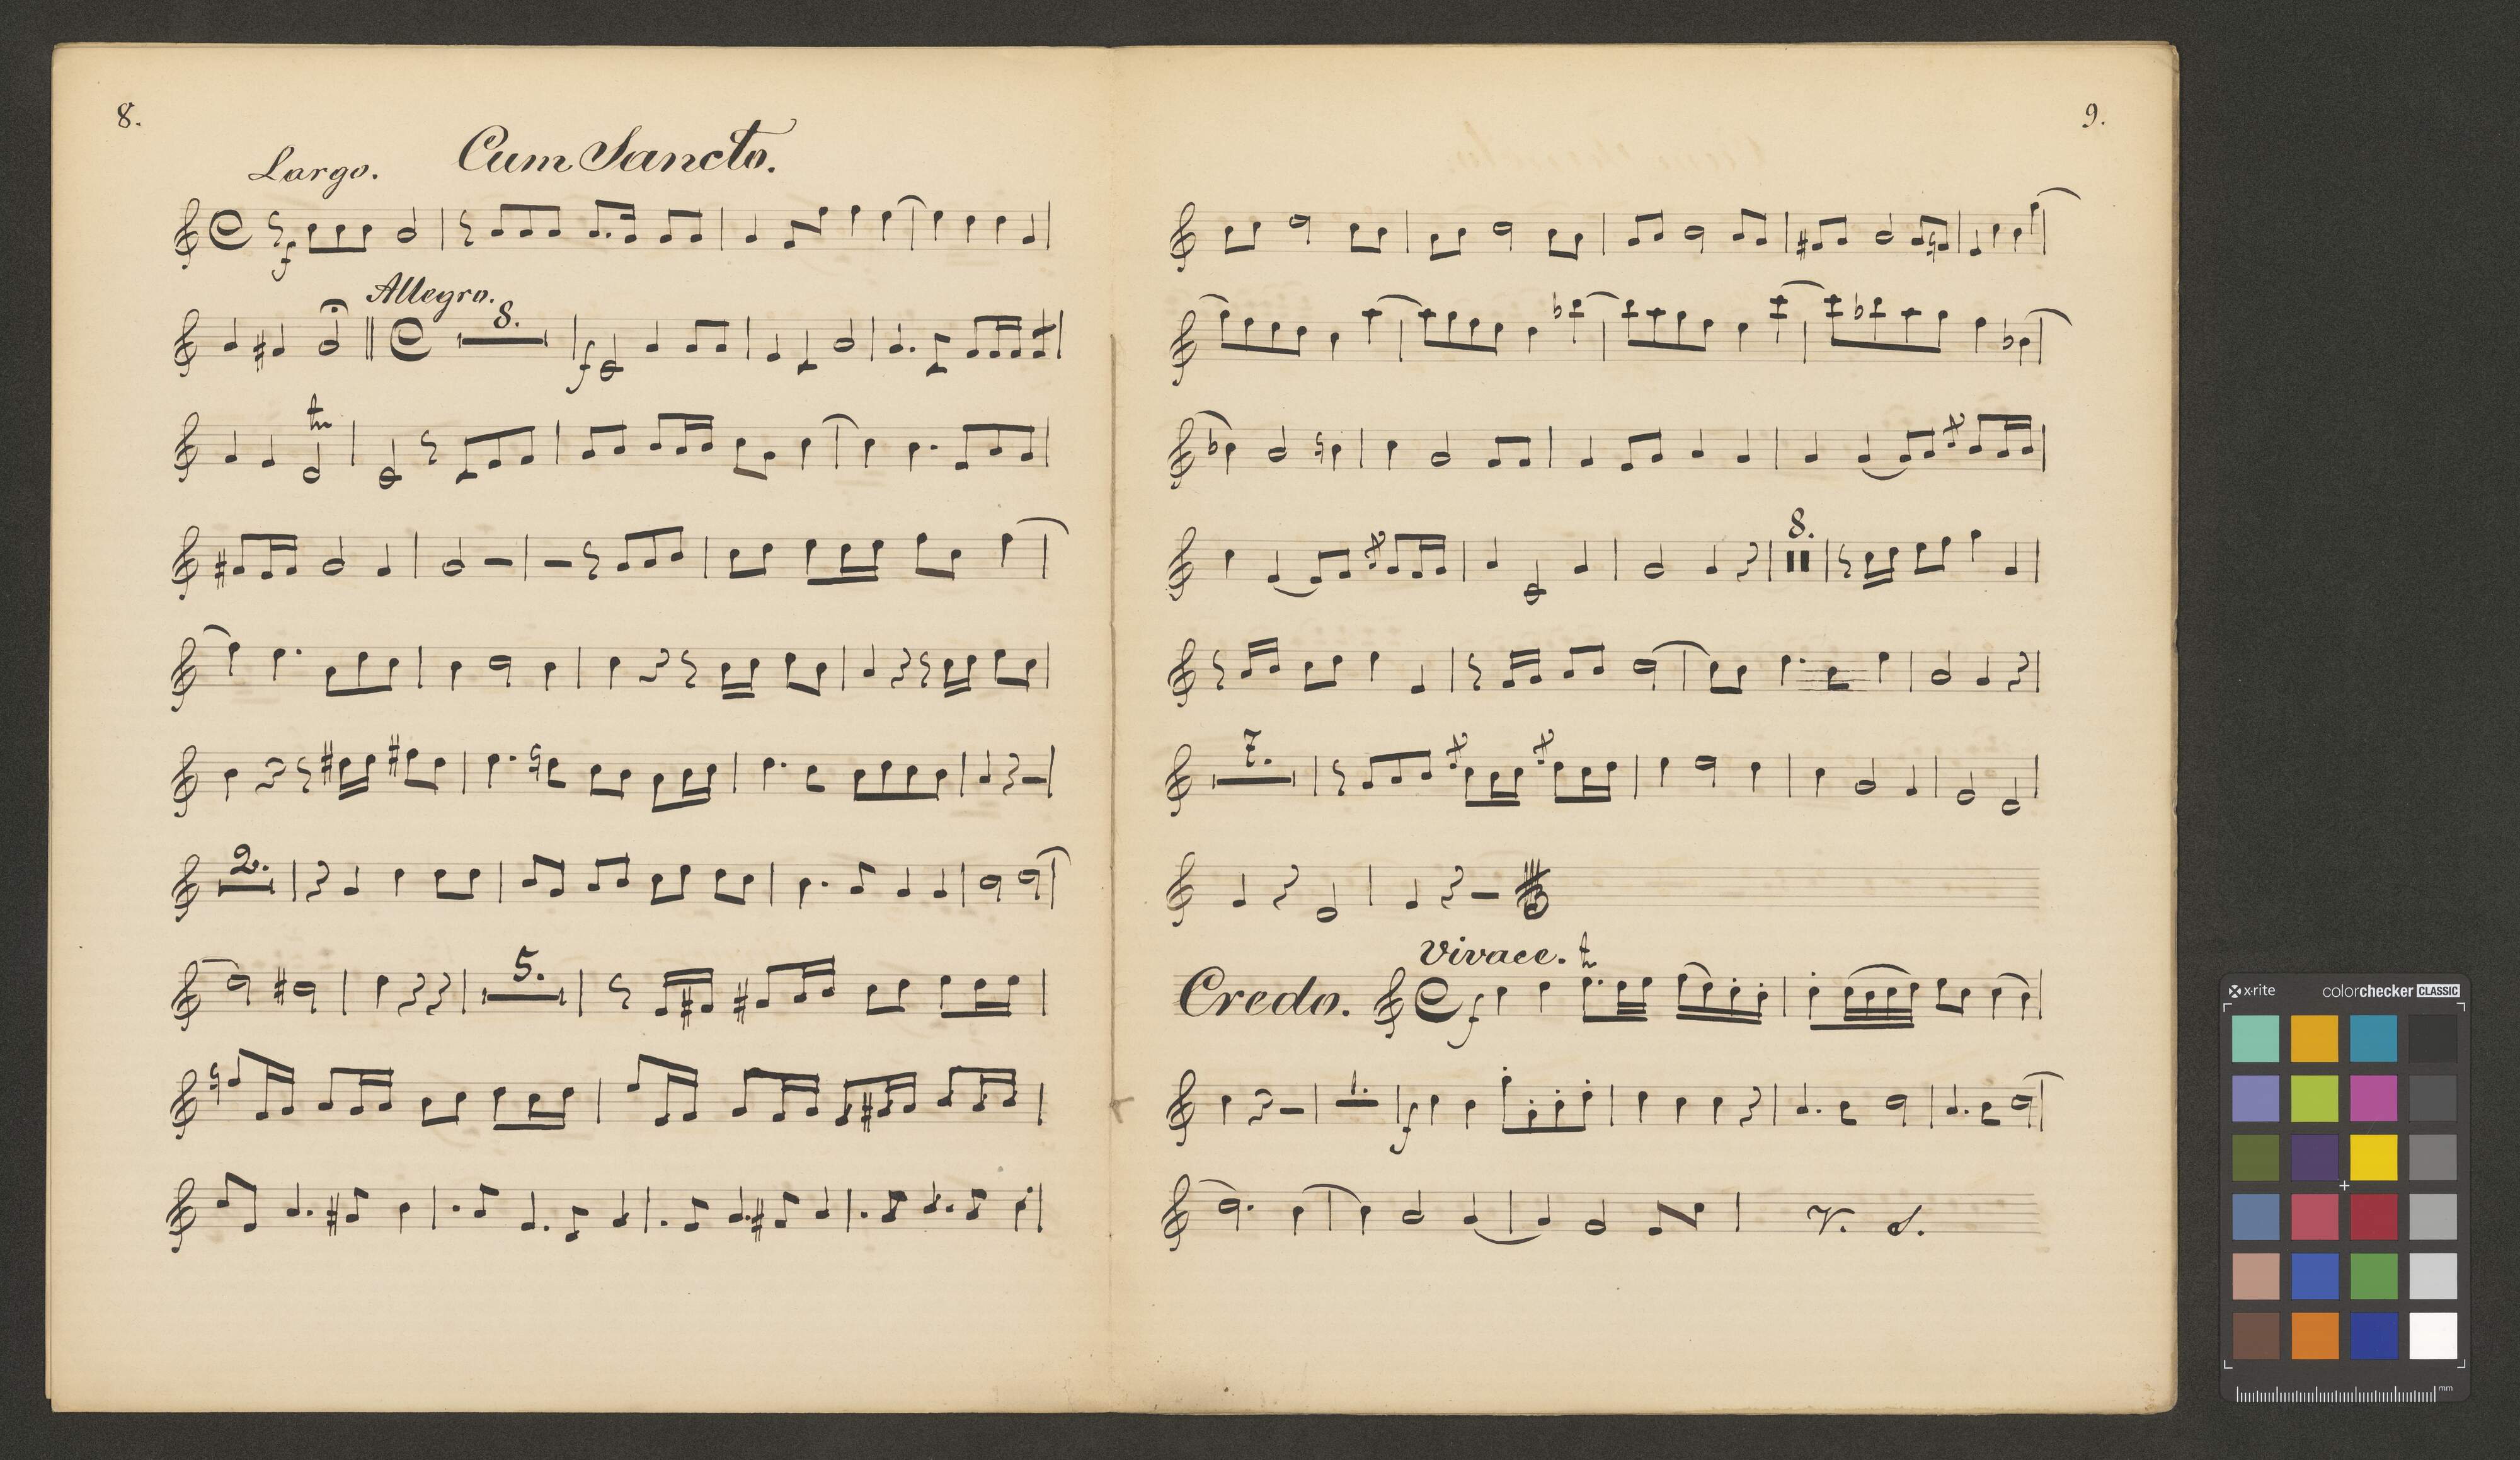 8.
Largo. Cum Sancto.
f
Allegro.
8.
f
tr
2.
5.
9.
8.
7.
Vivace. tr
Credo. f
1.
f
V. S.
x-rite colorchecker CLASSIC
mm